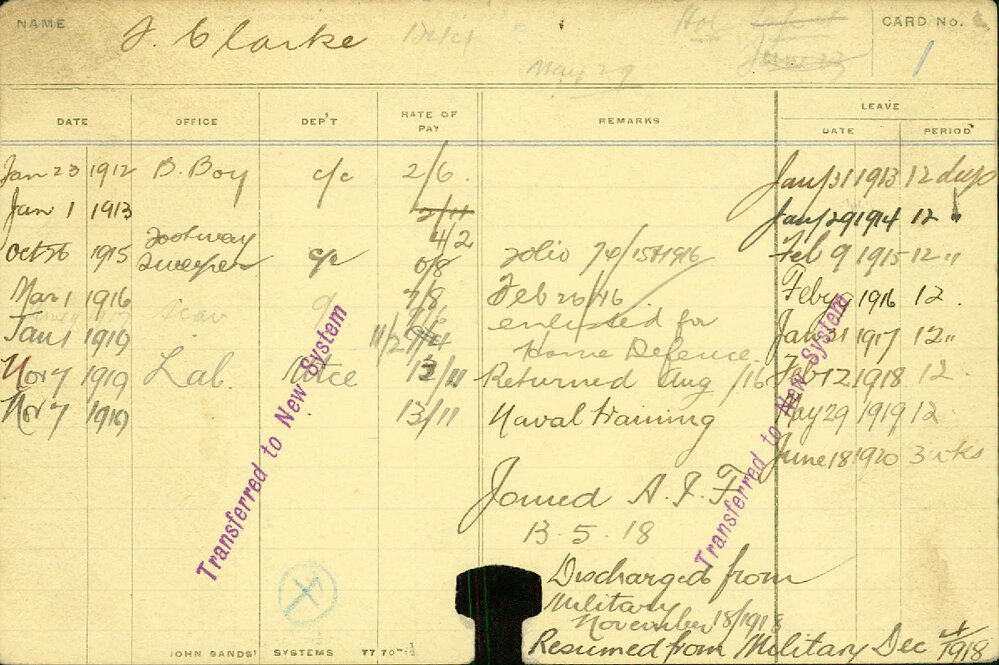 NAME J. Clarke CARD No. 1
May 29
DATE OFFICE DEP'T RATE OF PAY REMARKS LEAVE
DATE PERIOD
Jan 23 1912 B. Boy c/c 2/6. Jany 31 1913 12 days
Jan 1 1913 2/11 Jany 29 1914 12 "
4/2
Oct 26 1915 Footway Sweeper c/c 6/8 Folio 76/1574/16 Feb 9 1915 12 "
Mar 1 1916 7/8 Feb 26/16 Feby 9 1916 12.
enlisted for
Jan 1 1919 11/2 Home Defence. Jan 31 1917 12 "
Nov 7 1919 Lab. 13/11 Returned Aug /16 Feb 12 1918 12.
Nov 7 1919 13/11 Naval training May 29 1919 12
June 18 1920 3 wks
Joined A. I. F.
13. 5. 18
Discharged from
Military
November 18/1918
Resumed from Military Dec 4/1918
Transferred to New System
Transferred to New System
JOHN SANDS' SYSTEMS